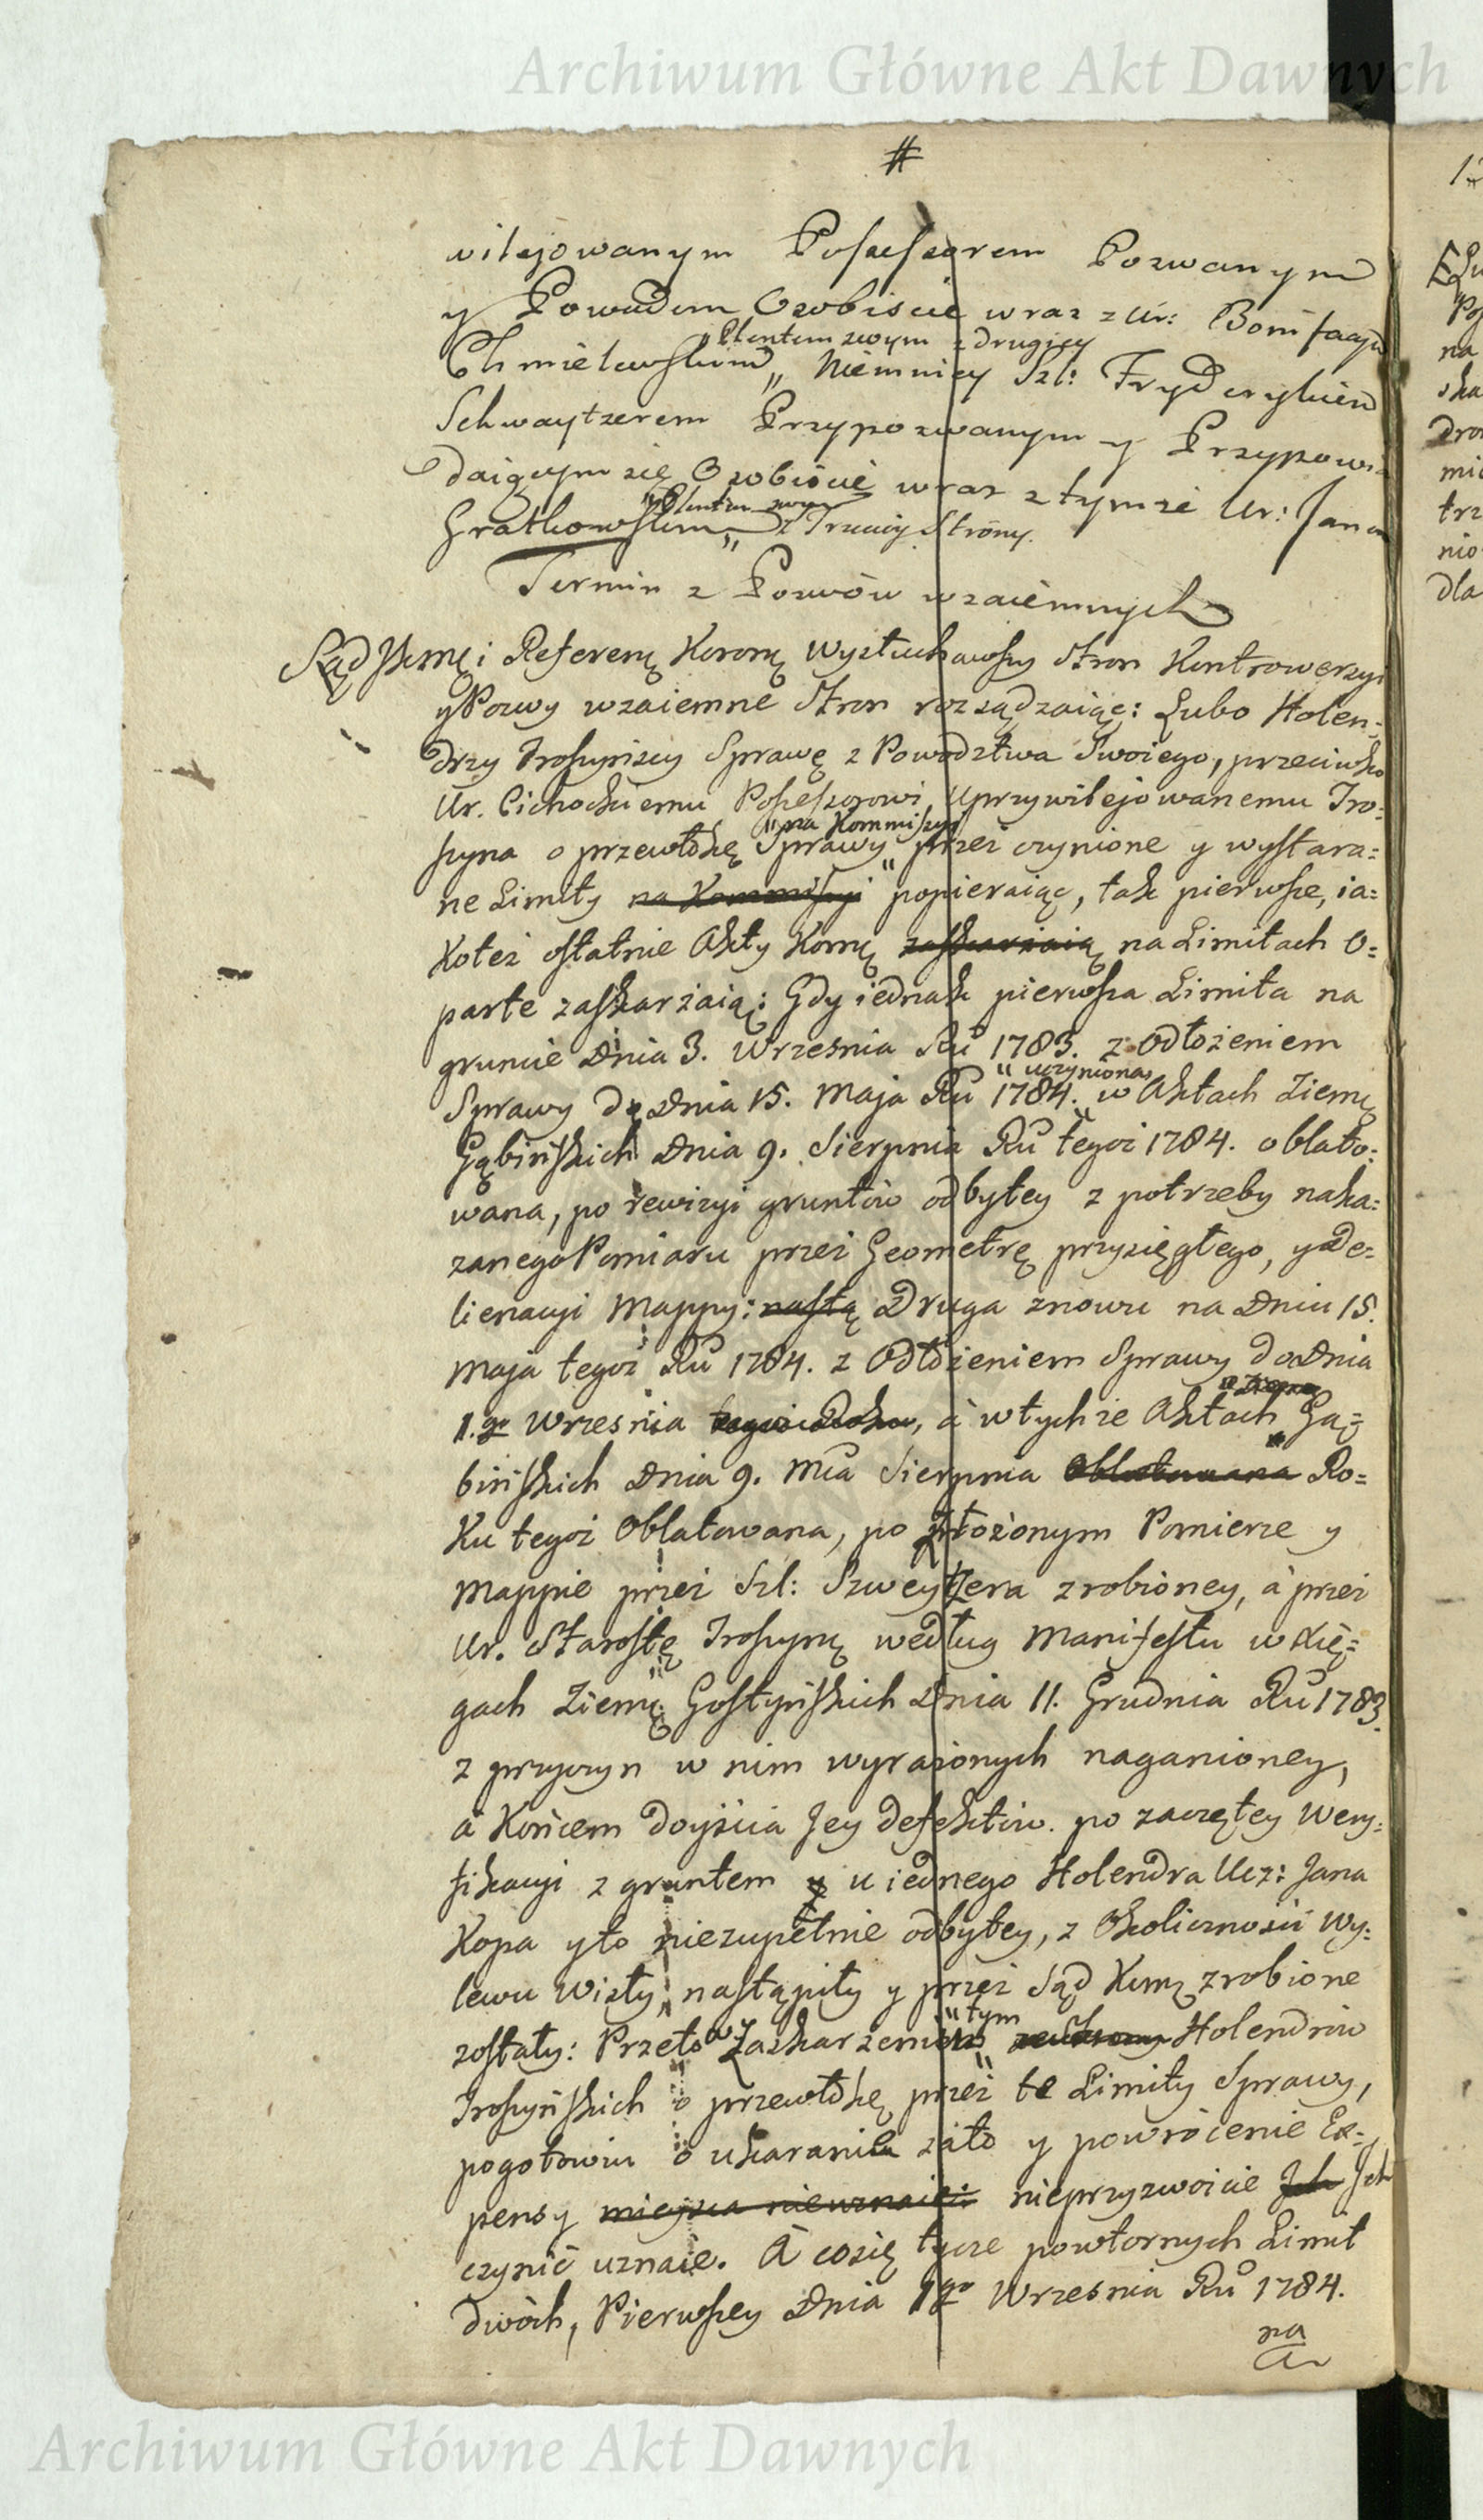 Archiwum Główne Akt Dawnych
#
wilejowanym Possessorem Pozwanym
y Powodem Osobiście wraz z Ur: Bonifacym
"Plentem swym z drugiey
Chmielewskim" Niemniey Szl: Fryderykiem
Schwaytzerem Przypozwanym y Przypowia
daiącym się Osobiście wraz z tymże Ur: Janem
"Plentem swym
Gratkowskim" z Trzeciey Strony.
Termin z Pozwów wzaiemnych
Sąd JKmci Referenr. Koronr. Wysłuchawszy Stron Kontrowersyi
y Pozwy wzaiemne Stron rozsądzaiąc: Lubo Holen-
drzy Troszynscy Sprawę z Powodztwa Swoiego, przeciwko
Ur. Cichockiemu Possessorowi Uprzywilejowanemu Tro-
"na Kommissyi
szyna o przewłokę Sprawy" przez czynione y wystara=
ne Limity na Kommissyi popieraiąc, tak pierwsze, ia=
koteż ostatnie Akty Komr. zaskarżaią na Limitach o=
parte zaskarżaią: Gdy iednak pierwsza Limita na
gruncie Dnia 3. Września Ru 1783. z Odłożeniem
"uczyniona
Sprawy do Dnia 15. Maja Ru 1784." w Aktach Ziemr.
Gąbińskich Dnia 9. Sierpnia Ru tegoż 1784. oblato=
wana, po rewizyi gruntów odbytey z potrzeby naka=
zanego Pomiaru przez Geometrę przysięgłego, y de=
lienacyi Mappy: nastą Druga znowu na Dniu 15.
Maja tegoż Ru 1784. z Odłożeniem Sprawy do Dnia
1.go Września tegoż Roku, á w tychże Aktach Gą=
bińskich Dnia 9. Mca Sierpnia Oblatowana Ro=
ku tegoż Oblatowana, po złożonym Pomierze y
Mappie przez Szl: Szweytzera zrobioney, á przez
Ur. Starostę Troszynr. według Manifestu w Xię=
gach Ziemr. Gostyńskich Dnia 11. Grudnia Ru 1783.
z przyczyn w nim wyrażonych naganioney,
á Końcem doyścia Jey defektów. po zaczętey Wery=
fikacyi z gruntem y u iednego Holendra Ucz: Jana
Kopa y to niezupełnie odbytey, z Okoliczności Wy=
lewu Wisły, nastąpiły y przez Sąd Komr. zrobione
"tym
zostały: Przeto w Zaskarżeniu" Holendrów
Troszyńskich o przewłokę przez te Limity Sprawy,
pogotowiu o ukaranie za to y powrócenie Ex=
pensy mieysca nieuznaie: nieprzyzwoicie Jch Jch
czynić uznaie. A co się tycze powtornych Limit
dwóch, Pierwszey Dnia 1go Września Ru 1784.
na
Archiwum Główne Akt Dawnych